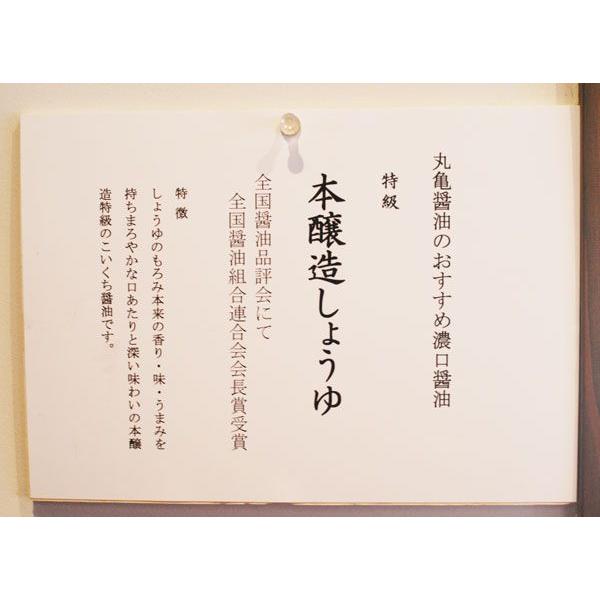 丸亀醤油のおすすめ濃口醤油
特級
本醸造しょうゆ
全国醤油品評会にて
全国醤油組合連合会会長賞受賞
特徴
しょうゆのもろみ本来の香り・味・うまみを
持ちまろやかな口あたりと深い味わいの本醸
造特級のこいくち醤油です。